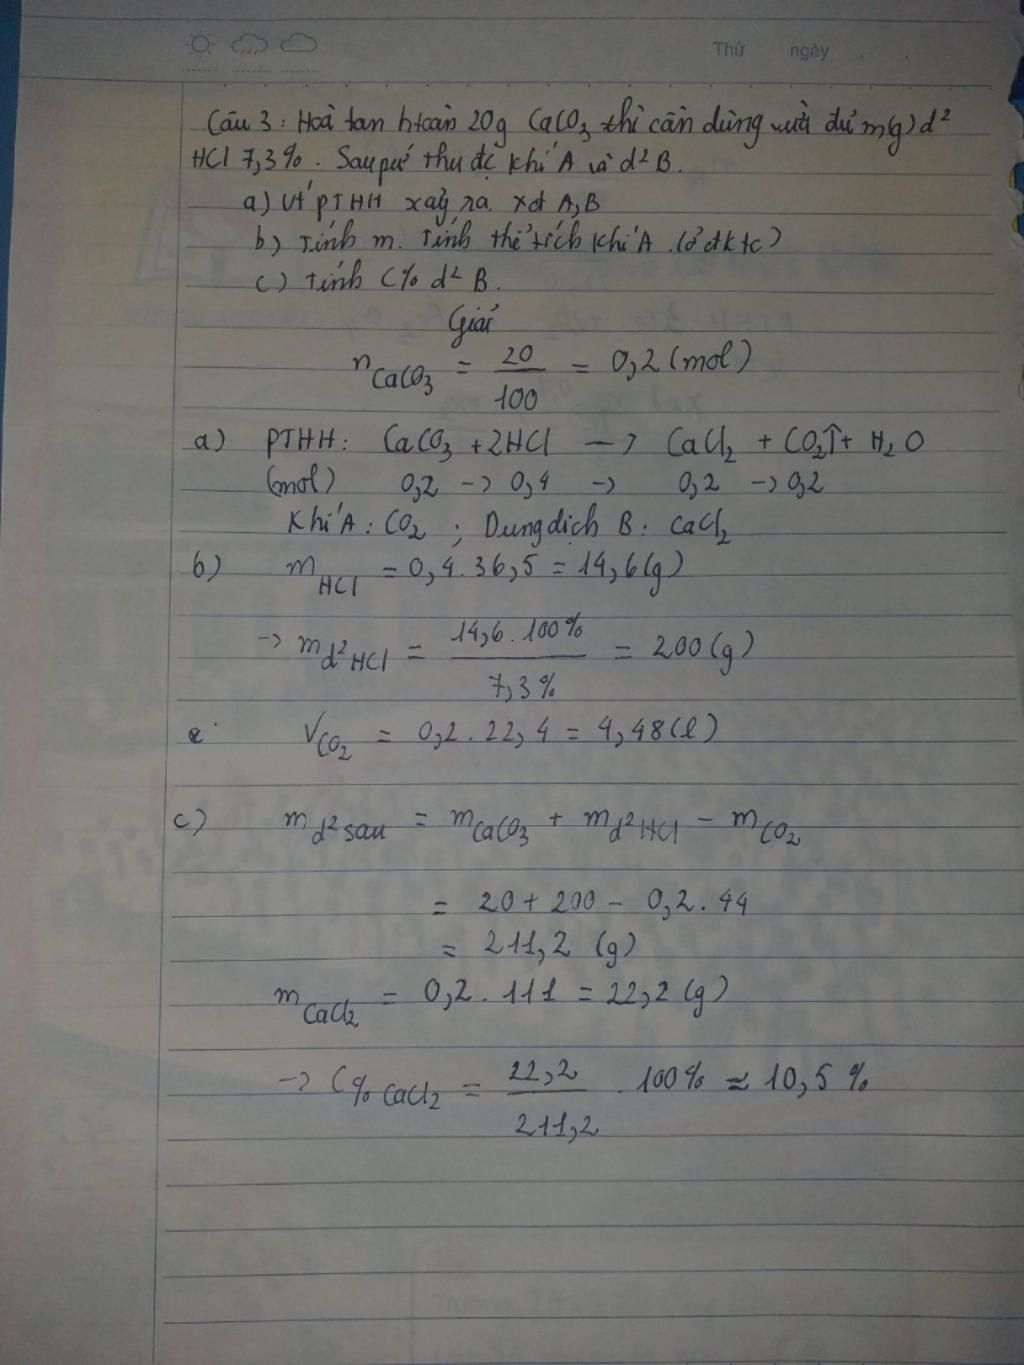 Thứ ngày
Câu 3: Hoà tan htoàn 20g CaCO3 thì cần dùng vừa đủ m(g) d²
HCl 7,3%. Sau pứ thu đc khí A và d² B.
a) Vt PTHH xảy ra. Xđ A, B
b) Tính m. Tính thể tích khí A (ở đktc)
c) Tính C% d² B.
Giải
nCaCO3 = 20/100 = 0,2 (mol)
a) PTHH: CaCO3 + 2HCl -> CaCl2 + CO2↑ + H2O
(mol) 0,2 -> 0,4 -> 0,2 -> 0,2
Khí A: CO2 ; Dung dịch B: CaCl2
b) mHCl = 0,4.36,5 = 14,6 (g)
-> md²HCl = 14,6.100%/7,3% = 200 (g)
VCO2 = 0,2.22,4 = 4,48 (l)
c) md² sau = mCaCO3 + md²HCl - mCO2
= 20 + 200 - 0,2.44
= 211,2 (g)
mCaCl2 = 0,2.111 = 22,2 (g)
-> C% CaCl2 = 22,2/211,2 . 100% ≈ 10,5 %